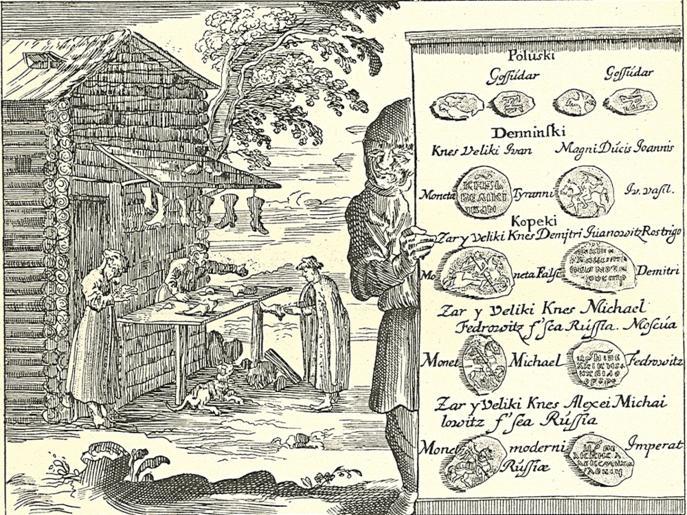 Poluski
Goſſúdar Goſſúdar
Denninſki
Knes Veliki Ivan Magni Dúcis Ioannis
Moneta Tyranni Iv. vaſil.
Kopeki
Zar y Veliki Knes Demitri Iuanowitz Roſtrigo
Mo neta Demitri
Zar y Veliki Knes Michael
Fedrowitz f'ſea Rúſſia. Moſcúa
Monet Michael Fedrowitz
Zar y Veliki Knes Alexei Michai
lowitz f'ſea Rúſſia
Monet moderni Imperat
Rúſſiæ